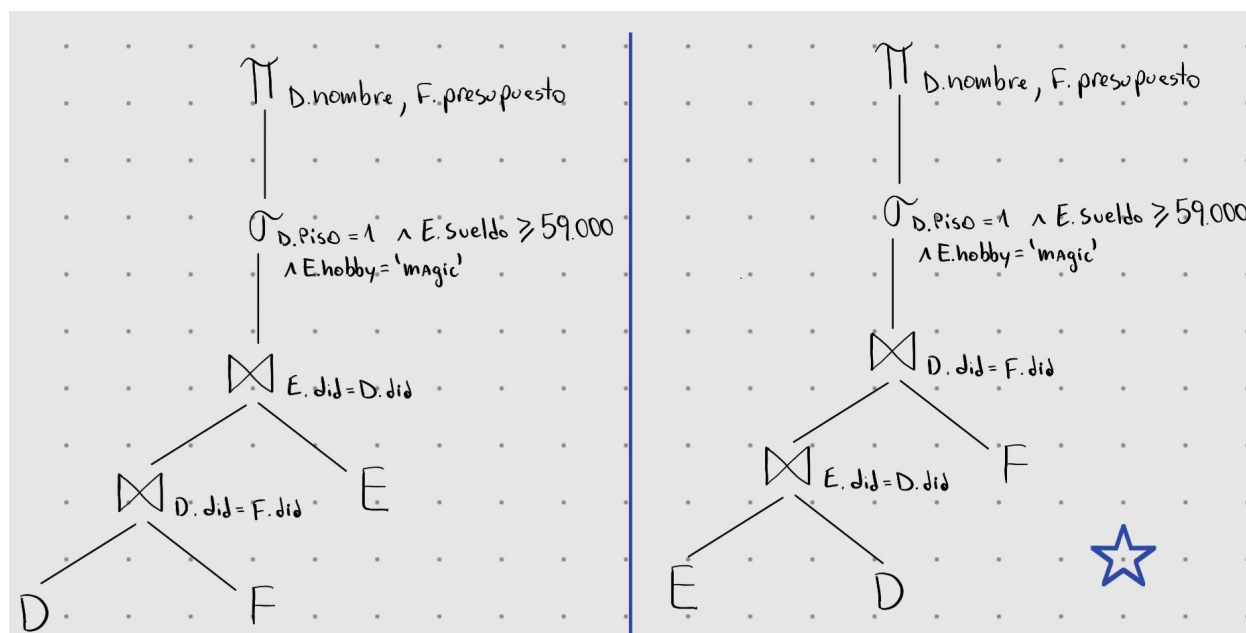 π D.nombre, F.presupuesto
σ D.Piso = 1 ∧ E.Sueldo ≥ 59.000
∧ E.hobby = 'mAgic'
⋈ E.did = D.did
⋈ D.did = F.did
E
D
F
π D.nombre, F.presupuesto
σ D.Piso = 1 ∧ E.Sueldo ≥ 59.000
∧ E.hobby = 'mAgic'
⋈ D.did = F.did
⋈ E.did = D.did
F
E
D